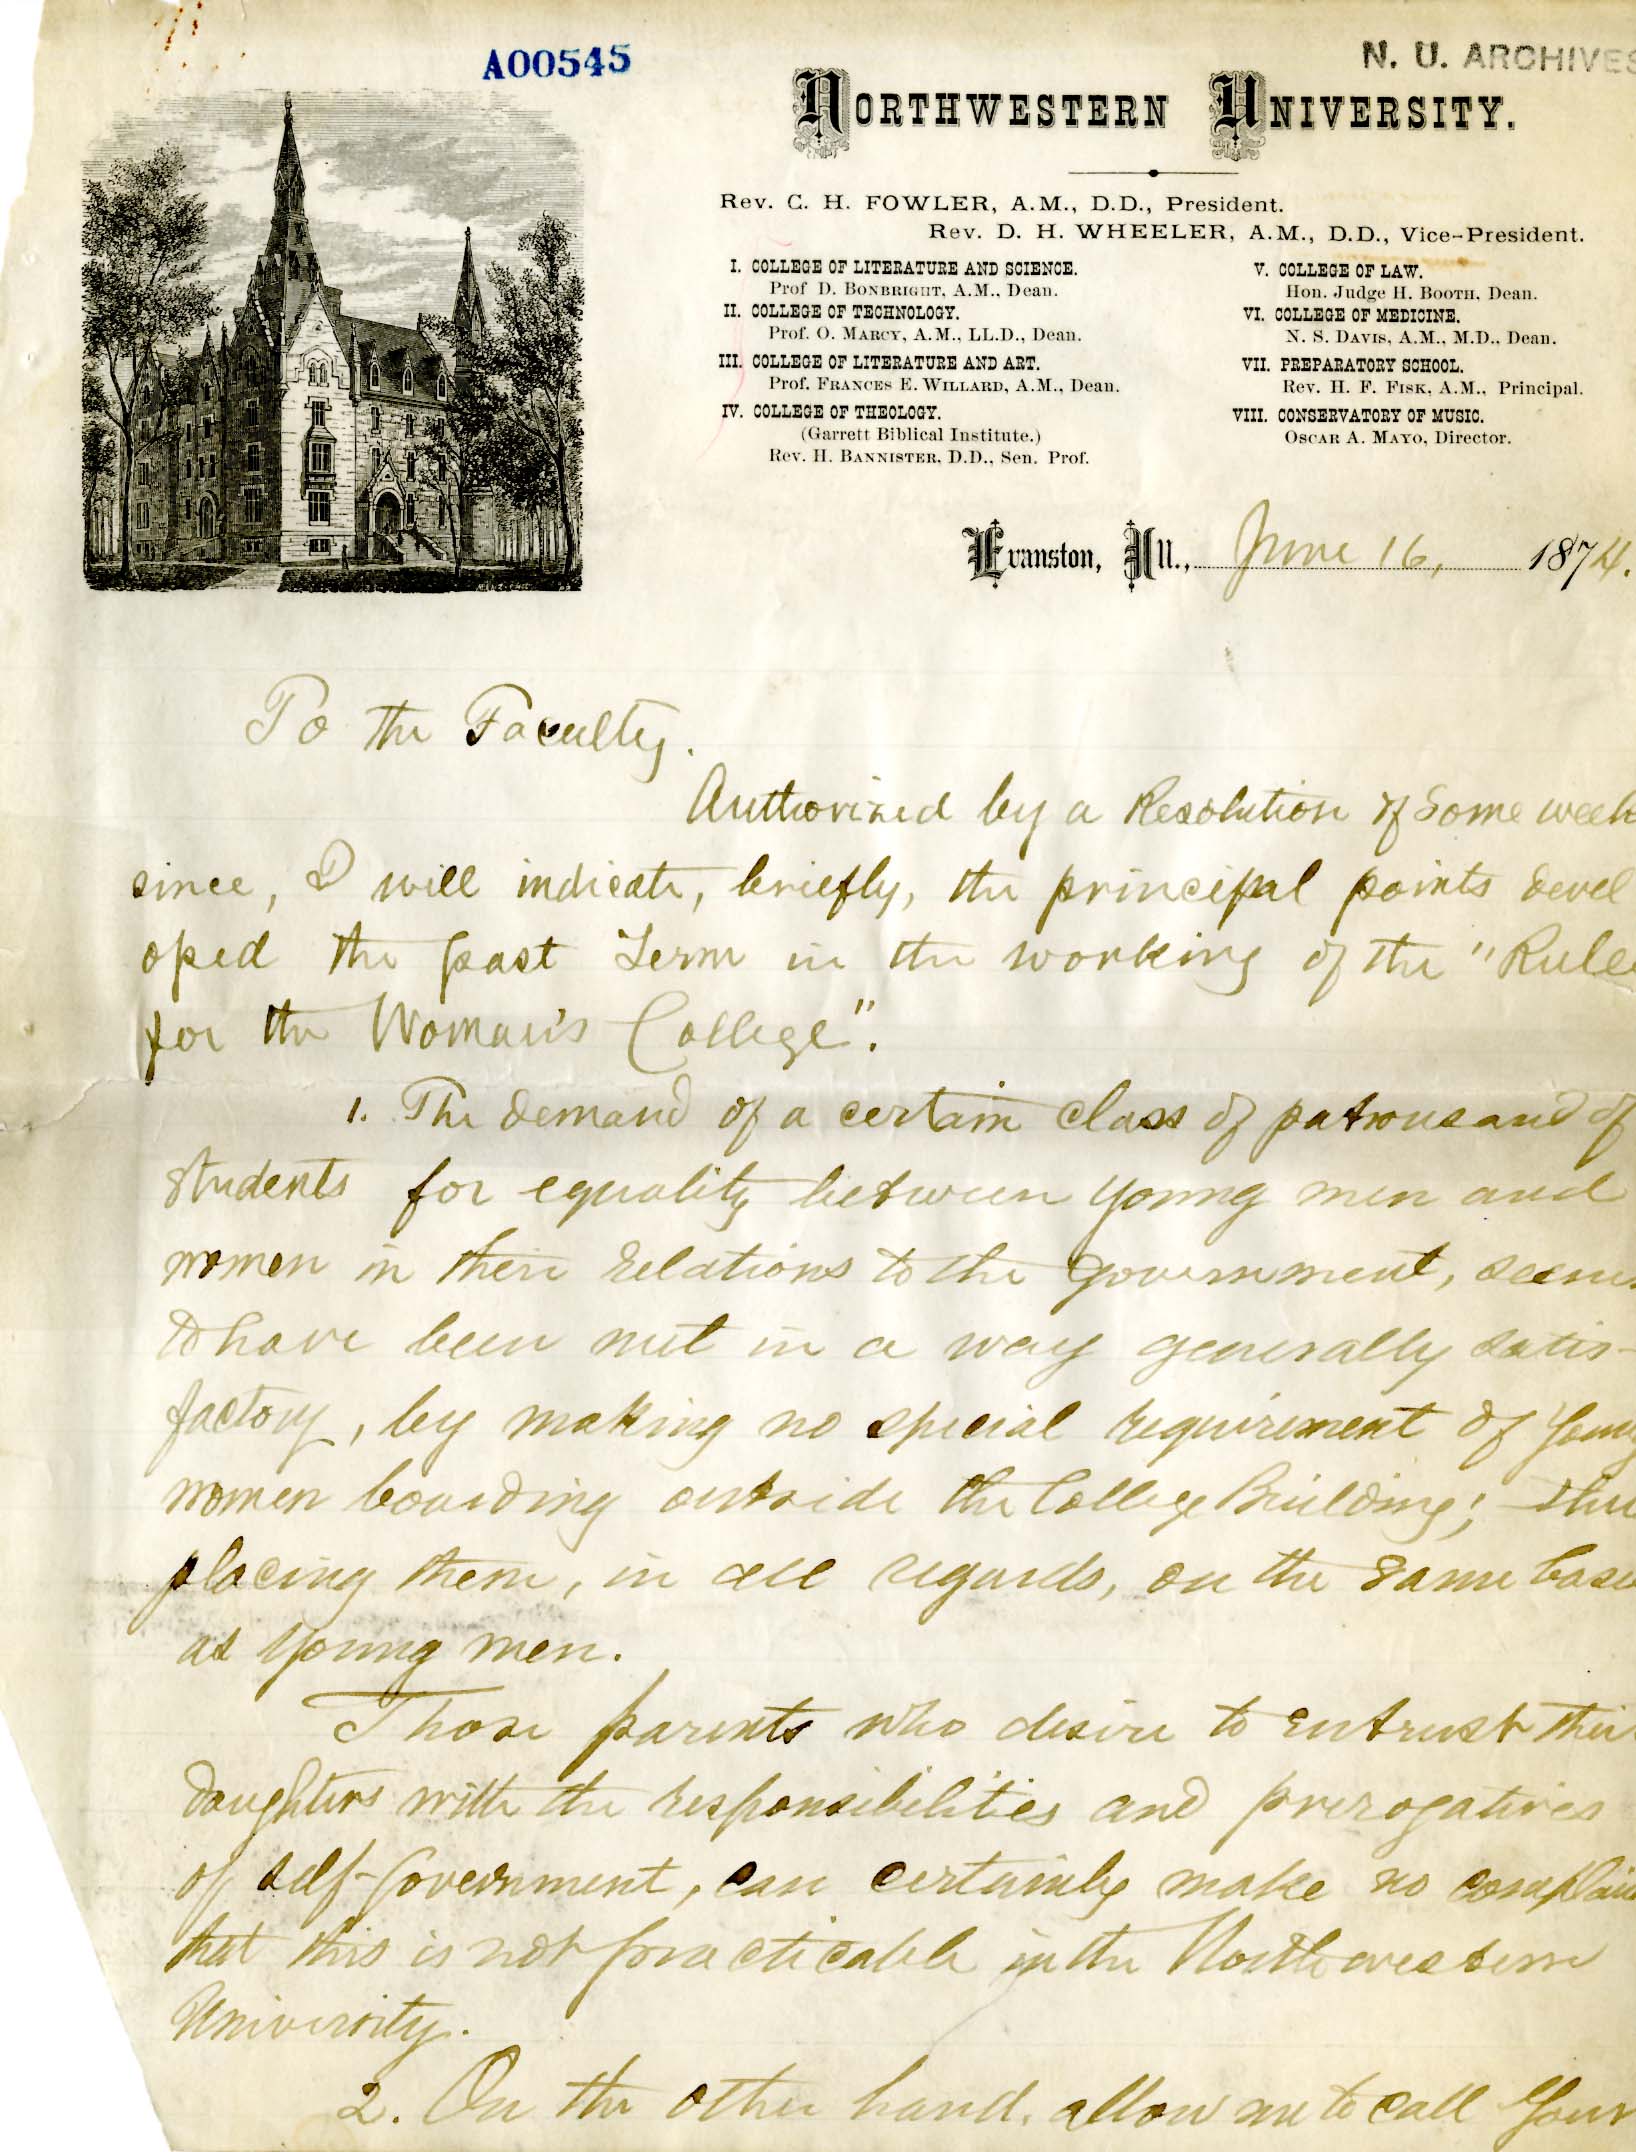 A00545
N. U. ARCHIVES
NORTHWESTERN UNIVERSITY.
Rev. C. H. FOWLER, A.M., D.D., President.
Rev. D. H. WHEELER, A.M., D.D., Vice-President.
I. COLLEGE OF LITERATURE AND SCIENCE.
Prof D. BONBRIGHT, A.M., Dean.
II. COLLEGE OF TECHNOLOGY.
Prof. O. MARCY, A.M., LL.D., Dean.
III. COLLEGE OF LITERATURE AND ART.
Prof. FRANCES E. WILLARD, A.M., Dean.
IV. COLLEGE OF THEOLOGY.
(Garrett Biblical Institute.)
Rev. H. BANNISTER, D.D., Sen. Prof.
V. COLLEGE OF LAW.
Hon. Judge H. BOOTH, Dean.
VI. COLLEGE OF MEDICINE.
N. S. DAVIS, A.M., M.D., Dean.
VII. PREPARATORY SCHOOL.
Rev. H. F. FISK, A.M., Principal.
VIII. CONSERVATORY OF MUSIC.
OSCAR A. MAYO, Director.
Evanston, Ill., June 16, 1874.
To the Faculty.
Authorized by a Resolution of some week
since, I will indicate, briefly, the principal points devel
oped the past Term in the working of the "Rules
for the Woman's College".
1. The demand of a certain class of patrons and of
students for equality between young men and
women in their relations to the government, seems
to have been met in a way generally satis-
factory, by making no special requirement of young
women boarding outside the College Building; thus
placing them, in all regards, on the same basis
as young men.
Those parents who desire to entrust their
daughters with the responsibilities and prerogatives
of self-government, can certainly make no complain
that this is not practicable in the Northwestern
University.
2. On the other hand, allow me to call your